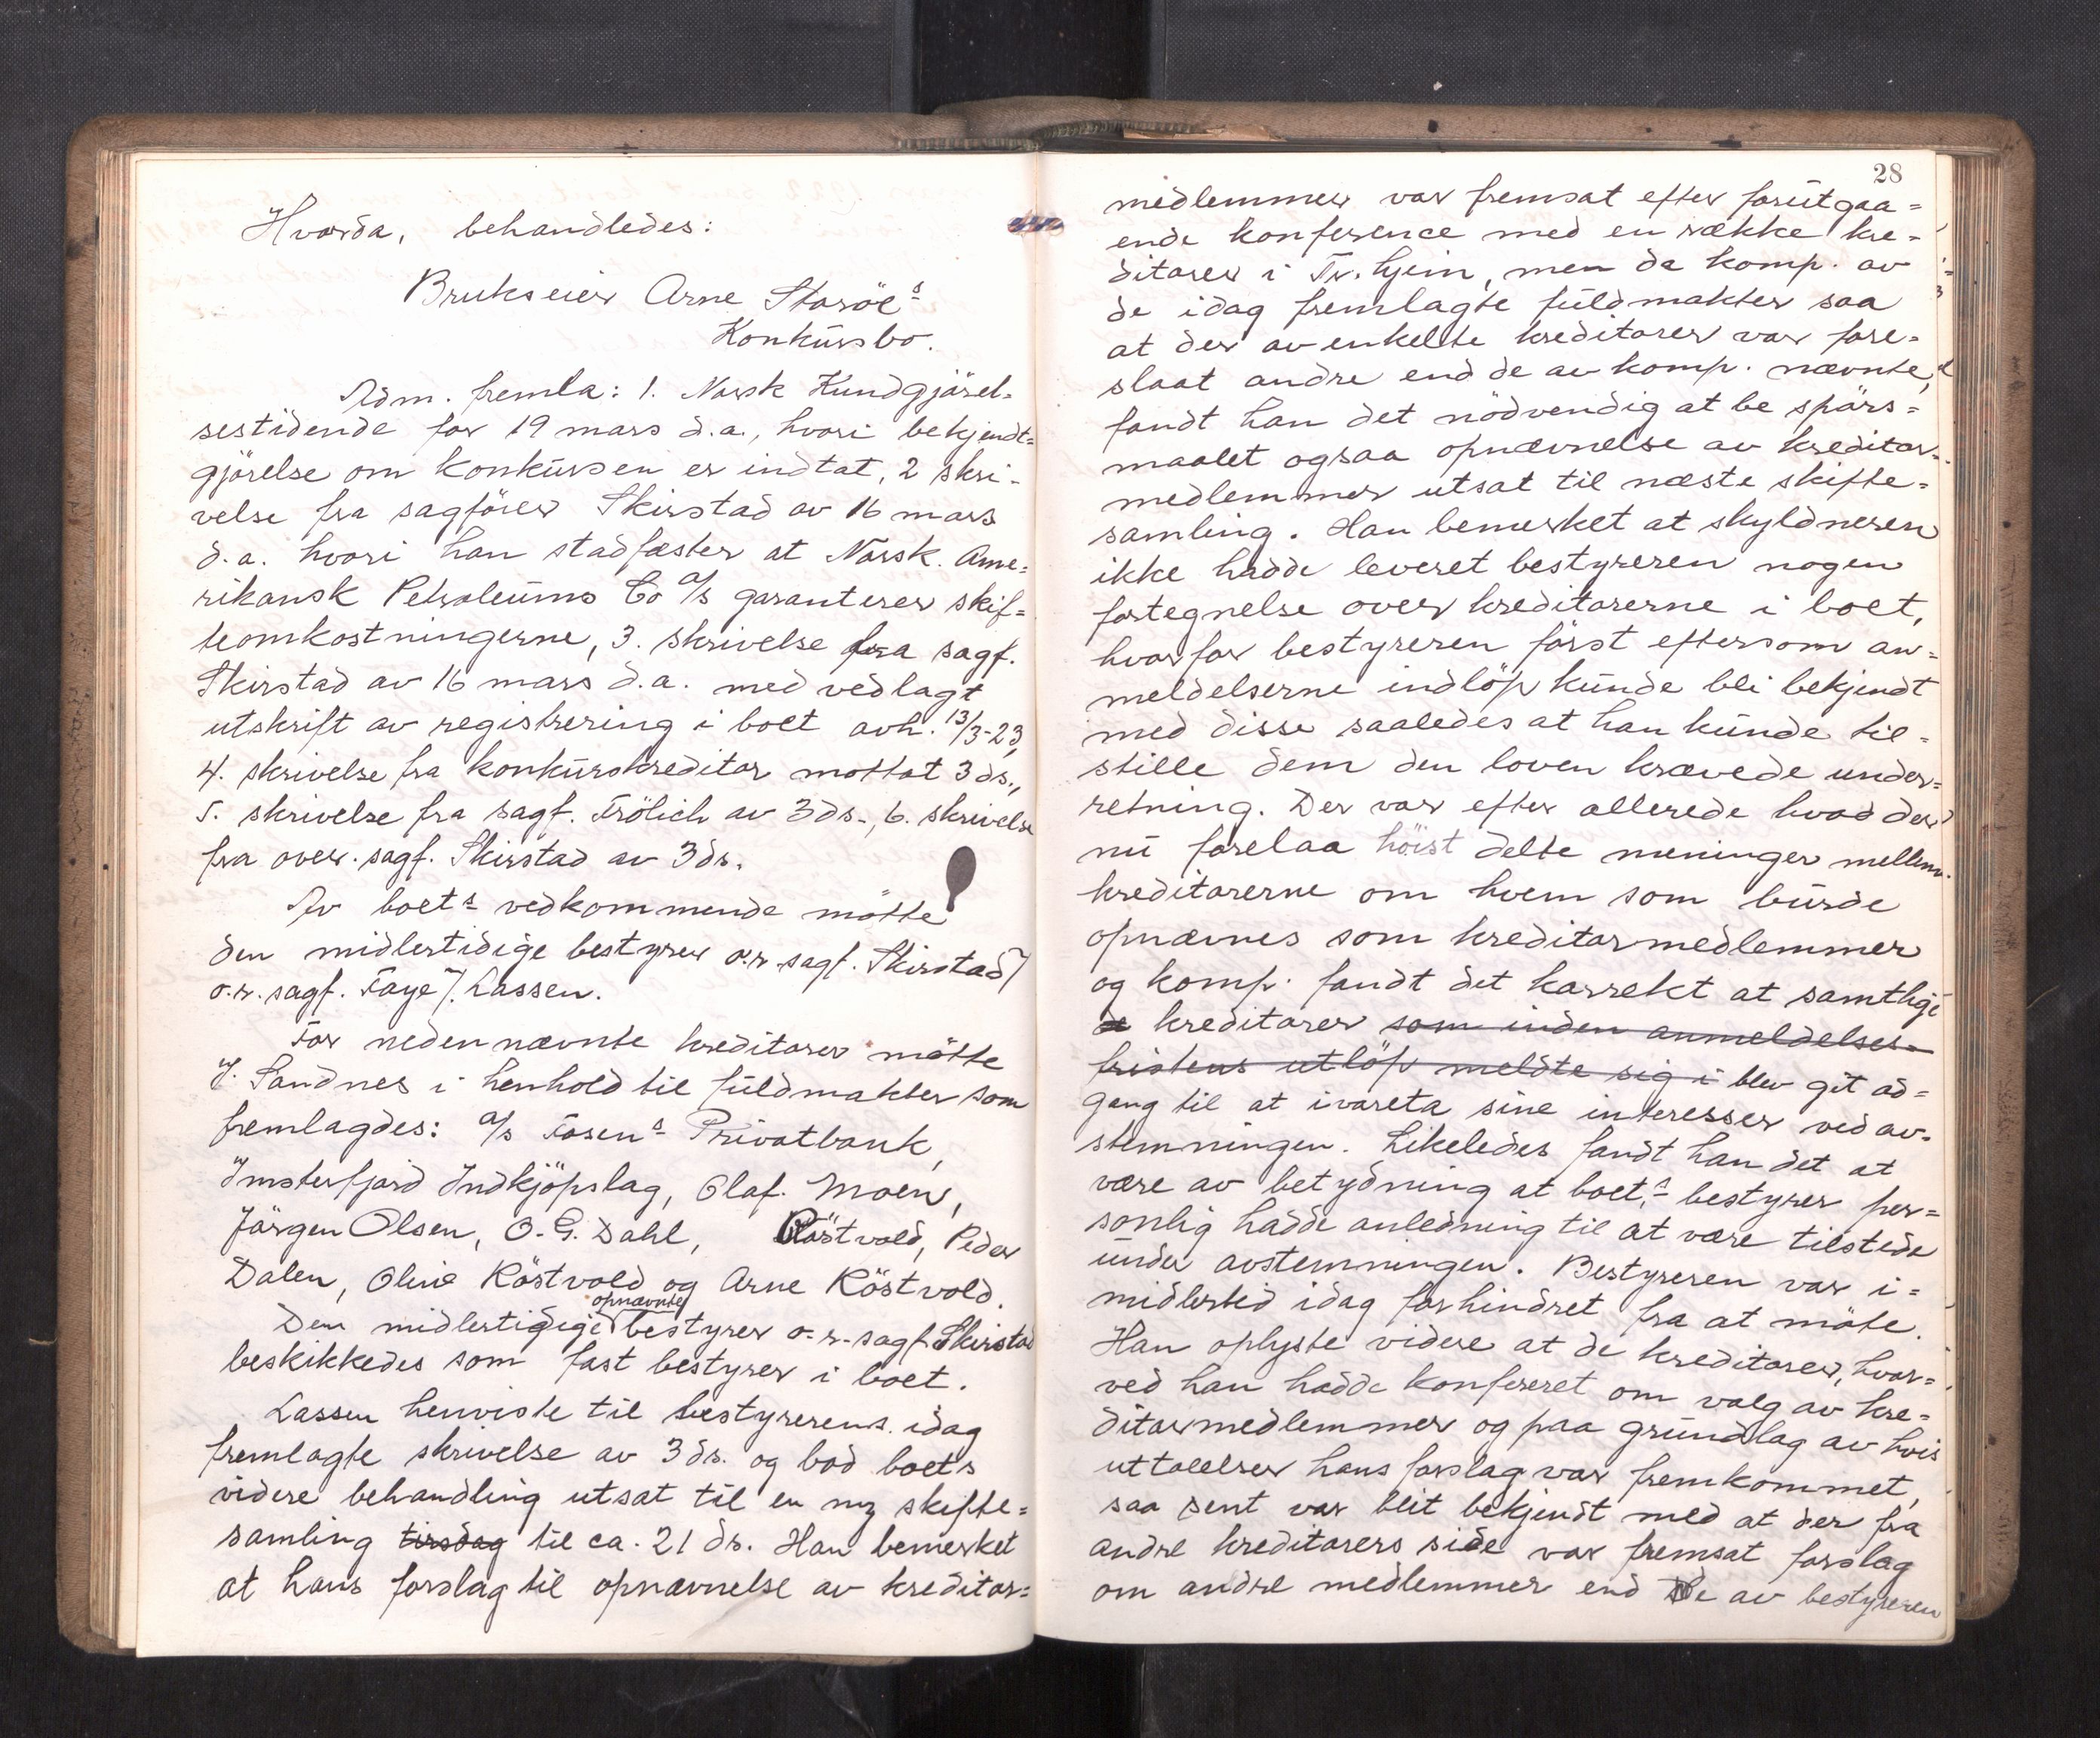 Hvorda, behandledes:
Brukseier Arne Storöes
Konkursbo.
Adm. fremla: 1. Norsk Kundgjörel-
sestidende for 19 mars d.a., hvori bekjendt-
gjörelse om konkursen er indtat, 2 skri-
velse fra sagförer Skirstad av 16 mars
d.a. hvori han stadfæster at Norsk. Ame-
rikansk Petroleums Co a/s garanterer skif-
teomkostningerne, 3. skrivelse fra sagf.
Skirstad av 16 mars d.a. med vedlagt
utskrift av registrering i boet avh. 13/3-23,
4. skrivelse fra konkurskreditor mottat 3 ds.,
5. skrivelse fra sagf. Frölich av 3 ds., 6. skrivelse
fra over. sagf. Skirstad av 3 ds.
Av boets vedkommende mötte
den midlertidige bestyrer o.r. sagf. Skirstad /
o.r. sagf. Faye /. Lassen.
For nedennævnte kreditorer mötte
J. Sandnes i henhold til fuldmakter som
fremlagdes: a/s Fosens Privatbank,
Imsterfjord Indkjöpslag, Olaf. Moen,
Jörgen Olsen, O. G. Dahl, Röstvold, Peder
Dalen, Oline Röstvold og Arne Röstvold.
opnævnte
Den midlertidige bestyrer o.r. sagf. Skirstad
beskikkedes som fast bestyrer i boet.
Lassen henviste til bestyrerens idag
fremlagte skrivelse av 3 ds. og bad boets
videre behandling utsat til en ny skifte-
samling tirsdag til ca. 21 ds. Han bemerket
at hans forslag til opnævnelse av kreditor-
28
medlemmer var fremsat efter forutgaa-
ende konference med en række kre-
ditorer i Tr.hjem, men da komp. av
de idag fremlagte fuldmakter saa
at der av enkelte kreditorer var fore-
slaat andre end de av komp. nævnte,
fandt han det nödvendig at be spörs-
maalet ogsaa opnævnelse av kreditor-
medlemmer utsat til næste skifte-
samling. Han bemerket at skyldneren
ikke hadde leveret bestyreren nogen
fortegnelse over kreditorerne i boet,
hvorfor bestyreren först eftersom an-
meldelserne indlöp kunde bli bekjendt
med disse saaledes at han kunde til-
stille dem den loven krævede under-
retning. Der var efter allerede hvad der
nu forelaa höist delte meninger mellem
kreditorerne om hvem som burde
opnævnes som kreditormedlemmer
og komp. fandt det korrekt at samtlige
kreditorer som inden anmeldelses-
fristens utlöp meldte sig i blev git ad-
gang til at ivareta sine interesser ved av-
stemningen. Likeledes fandt han det at
være av betydning at boets bestyrer per-
sonlig hadde anledning til at være tilstede
under avstemningen. Bestyreren var i-
midlertid idag forhindret fra at möte.
Han oplyste videre at de kreditorer, hvor-
ved han hadde konfereret om valg av kre-
ditormedlemmer og paa grundlag av hvis
uttalelser hans forslag var fremkommet,
saa sent var blit bekjendt med at der fra
andre kreditorers side var fremsat forslag
om andre medlemmer end de av bestyreren